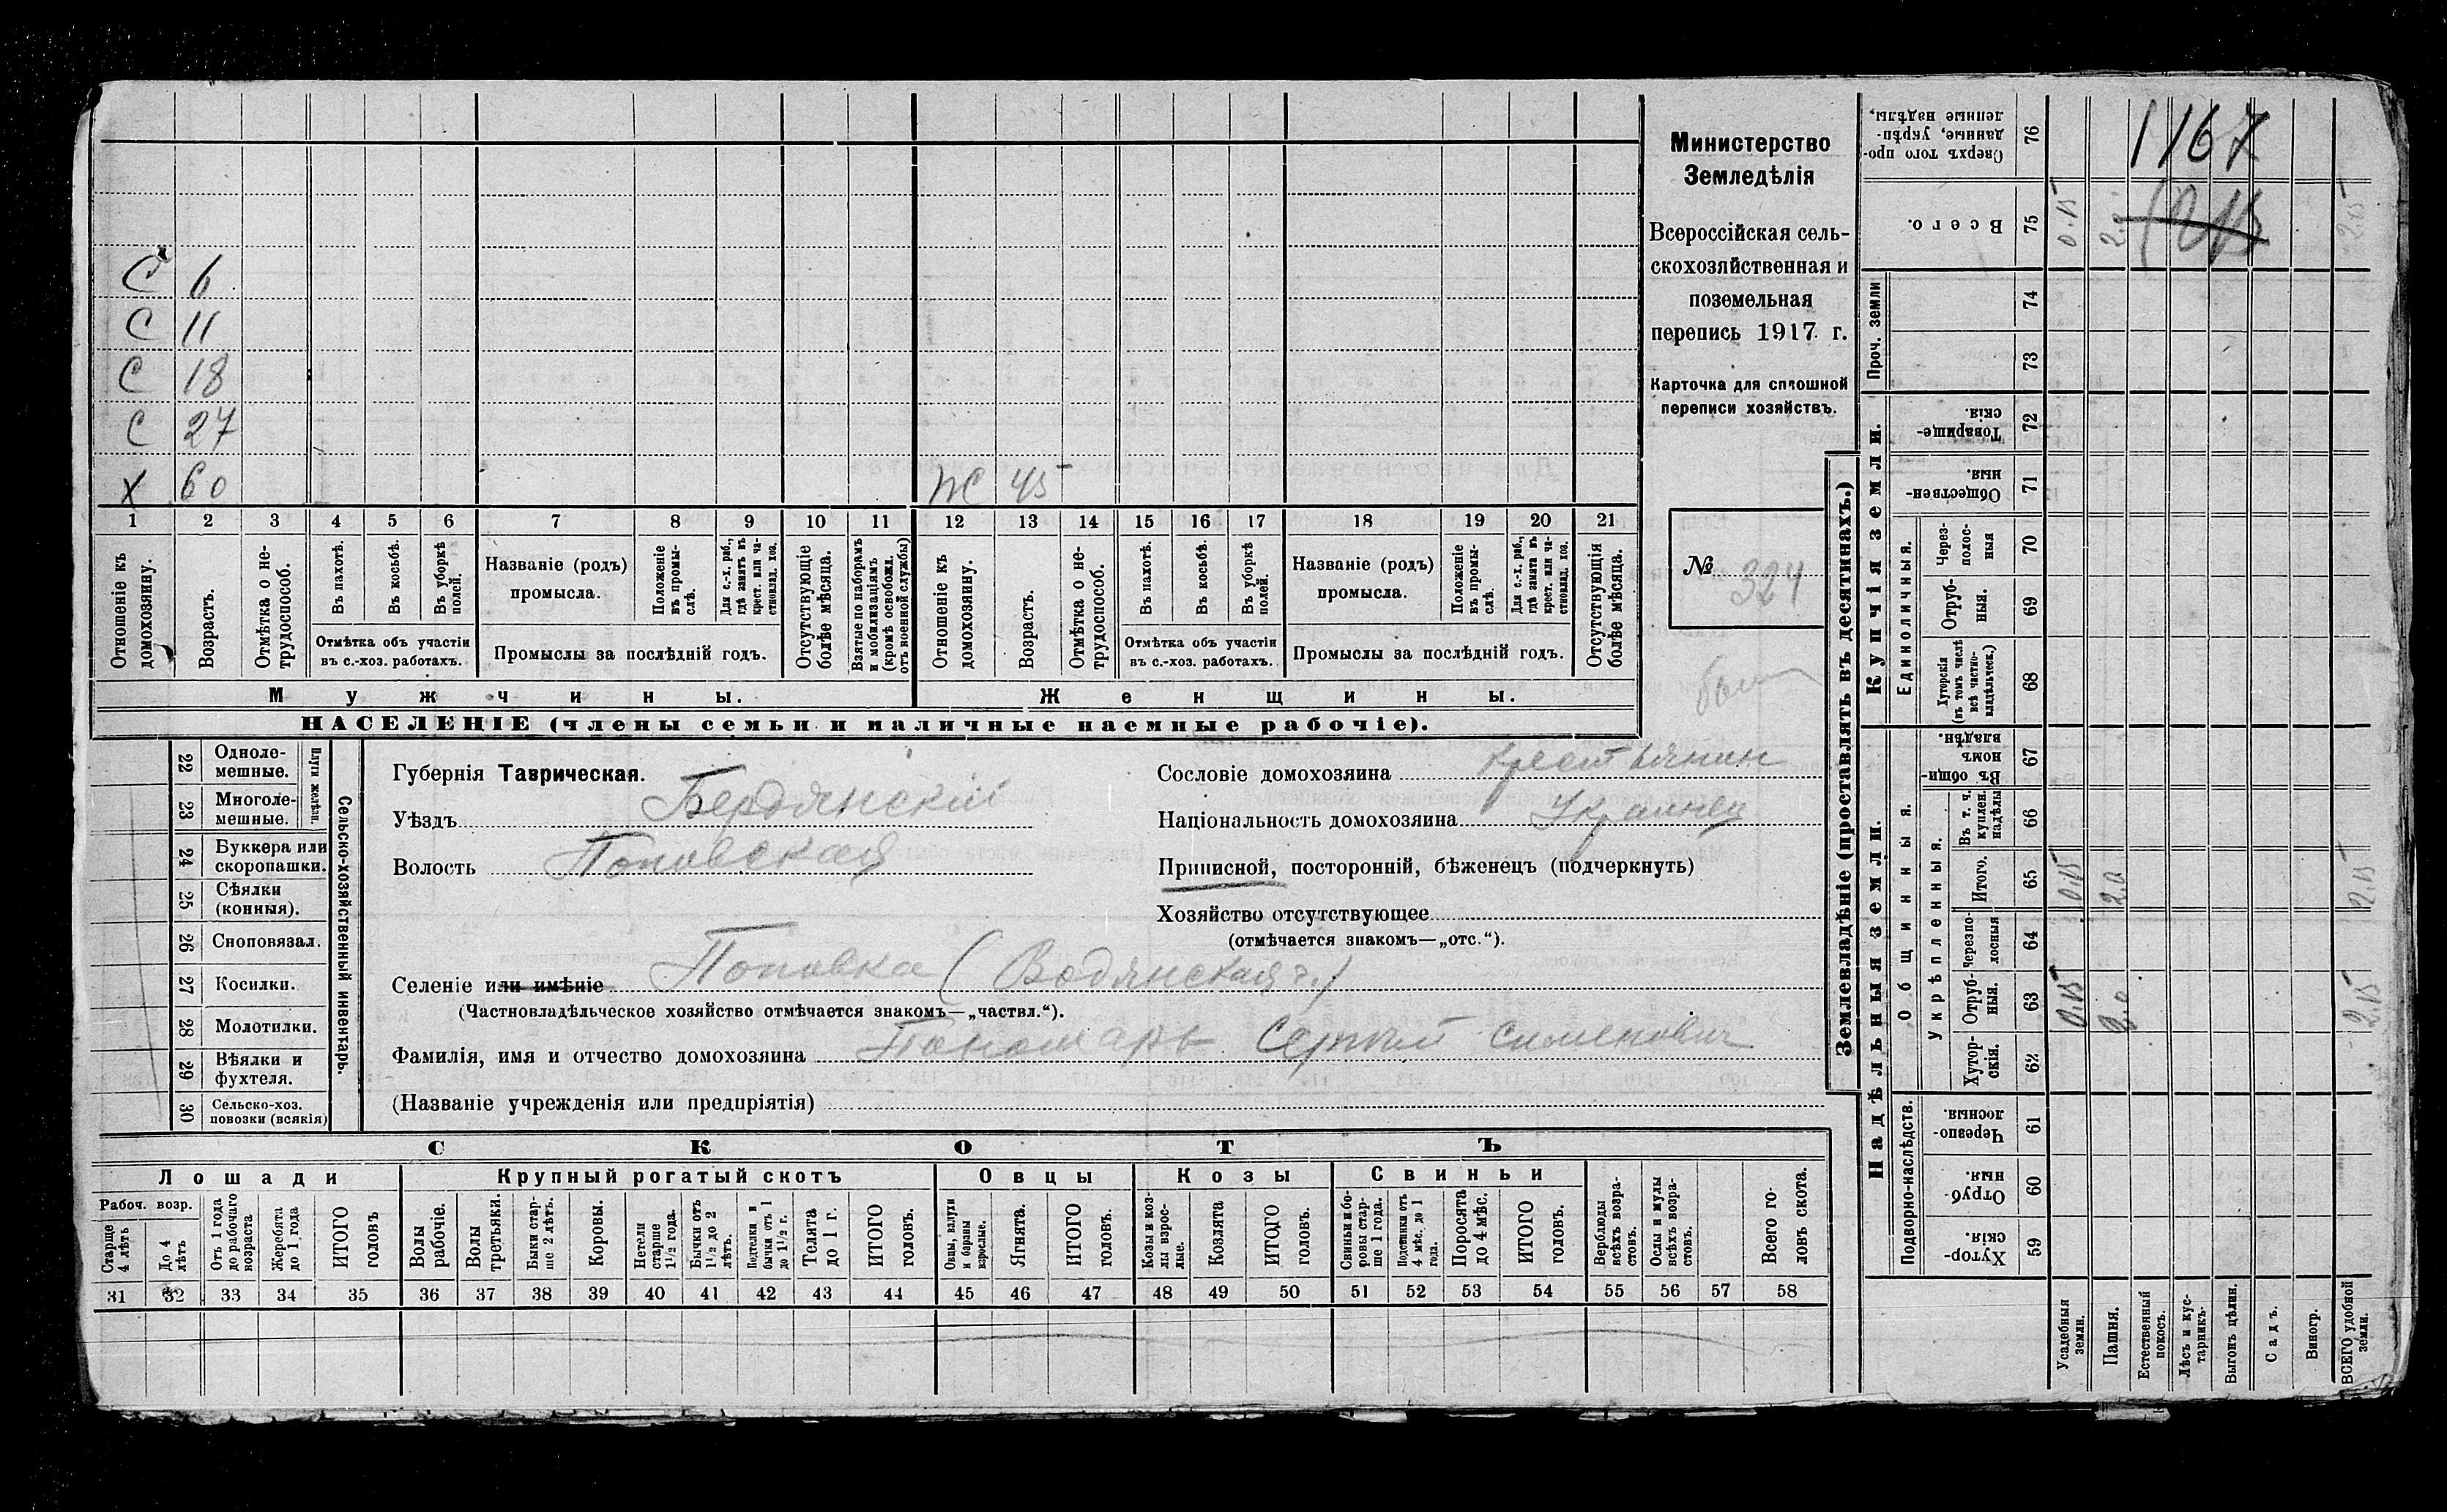 Министерство
Земледѣлія
Всероссійская сель-
скохозяйственная и
поземельная
перепись 1917 г.
Карточка для сплошной
переписи хозяйствъ.
№ 324
С 6
С 11
С 18
С 27
Х 60
Ж 45
1 2 3 4 5 6 7 8 9 10 11 12 13 14 15 16 17 18 19 20 21
Отношеніе къ домохозяину.
Возрастъ.
Отмѣтка о не-
трудоспособ.
Въ пахотѣ.
Въ косьбѣ.
Въ уборкѣ
полей.
Отмѣтка объ участіи
въ с.-хоз. работахъ.
Названіе (родъ)
промысла.
Положеніе
въ промы-
слѣ.
Для с.-х. раб.,
гдѣ занятъ въ
крест. или ча-
стновлад. хоз.
Промыслы за послѣдній годъ.
Отсутствующіе
болѣе мѣсяца.
Взятые по наборамъ
и мобилизаціямъ
(кромѣ освобожд.
отъ военной службы)
Отношеніе къ
домохозяину.
Возрастъ.
Отмѣтка о не-
трудоспособ.
Въ пахотѣ.
Въ косьбѣ.
Въ уборкѣ
полей.
Отмѣтка объ участіи
въ с.-хоз. работахъ.
Названіе (родъ)
промысла.
Положеніе
въ промы-
слѣ.
Для с.-х. раб.,
гдѣ занята въ
крест. или ча-
стновлад. хоз.
Промыслы за послѣдній годъ.
Отсутствующія
болѣе мѣсяца.
Мужчины.
Женщины.
НАСЕЛЕНІЕ (члены семьи и наличные наемные рабочіе).
Сельско-хозяйственный инвентарь.
Плуги желѣзн.
22 Одноле-
мешные.
23 Многоле-
мешные.
24 Буккера или
скоропашки.
25 Сѣялки
(конныя).
26 Сноповязал.
27 Косилки.
28 Молотилки.
29 Вѣялки и
фухтеля.
30 Сельско-хоз.
повозки (всякія)
Губернія Таврическая.
Уѣздъ Бердянскій
Волость Поповская
Сословіе домохозяина крестьянин
Національность домохозяина Украинец
Приписной, посторонній, бѣженецъ (подчеркнуть)
Хозяйство отсутствующее
(отмѣчается знакомъ—„отс.“).
Селеніе или имѣніе Поповка (Водянская ч.)
(Частновладѣльческое хозяйство отмѣчается знакомъ—„частвл.“).
Фамилія, имя и отчество домохозяина Пономарь Сергѣй Сименович
(Названіе учрежденія или предпріятія)
СКОТЪ
Лошади
Крупный рогатый скотъ
Овцы
Козы
Свиньи
Рабоч. возр.
Старше
4 лѣтъ
До 4
лѣтъ
Отъ 1 года
до рабочаго
возраста
Жеребята
до 1 года
ИТОГО
головъ
Волы
рабочіе.
Волы
третьяки.
Быки стар-
ше 2 лѣтъ.
Коровы.
Нетели
старше
1½ года.
Бычки отъ
1½ до 2
лѣтъ.
Подтелки и
бычки отъ 1
до 1½ г.
Телята
до 1 г.
ИТОГО
головъ.
Овцы, валухи
и бараны
взрослые.
Ягнята.
ИТОГО
головъ.
Козы и коз-
лы взрос-
лые.
Козлята
ИТОГО
головъ.
Свиньи и бо-
ровы стар-
ше 1 года.
Подсвинки отъ
4 мѣс. до 1
года.
Поросята
до 4 мѣс.
ИТОГО
головъ.
Верблюды
всѣхъ возра-
стовъ.
Ослы и мулы
всѣхъ возра-
стовъ.
Всего го-
ловъ скота.
31 32 33 34 35 36 37 38 39 40 41 42 43 44 45 46 47 48 49 50 51 52 53 54 55 56 57 58
Землевладѣніе (проставлять въ десятинахъ.)
Надѣльныя земли.
Купчія земли.
Проч. земли
Подворно-наслѣдств.
Общинныя.
Укрѣпленныя.
Единоличныя.
1167
Сверхъ того про-
данные, укрѣп-
ленные надѣлы, 76
Всего. 75 0.15 2.0 2.15
74
73
Товарище-
скія. 72
Обществен-
ныя. 71
Через-
полос-
ныя 70
Отруб-
ныя. 69
Хуторскія
(въ томъ числѣ
всѣ частно-
владѣльческ.) 68
Въ общи-
номъ
владѣн. 67
Въ т. ч.
куплен.
надѣлы 66
Итого. 65 0.15 2.0 2.15
Черезпо-
лосныя 64
Отруб-
ныя. 63 0.15 2.0 2.15
Хутор-
скія. 62
Черезпо-
лосныя. 61
Отруб-
ныя. 60
Хутор-
скія. 59
Усадебныя
земли.
Пашня.
Естественный
покосъ.
Лѣсъ и кус-
тарникъ.
Выгонъ цѣлин.
Садъ.
Виногр.
ВСЕГО удобной
земли.